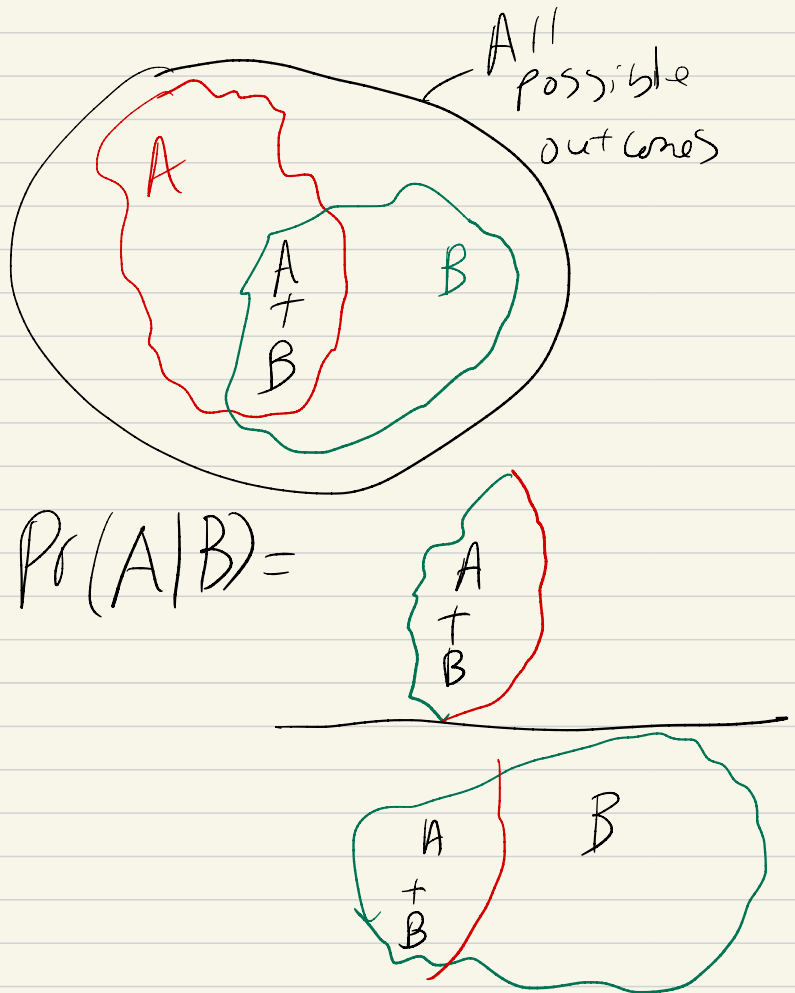 All
possible
outcomes
A
A
+
B
B
Pr(A|B)=
A
+
B
A
+
B
B